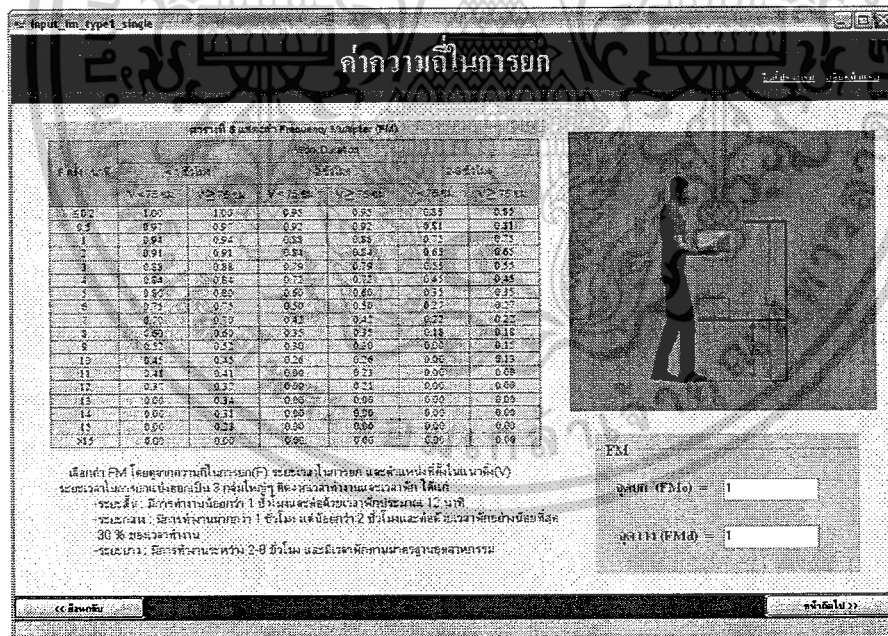 input_fm_type1_single
ค่าความถี่ในการยก
ตารางที่ 5 แสดงค่า Frequency Multiplier (FM)
Work Duration
V<75 ซม. V≥75 ซม. V<75 ซม. V≥75 ซม. V<75 ซม. V≥75 ซม.
≤0.2 1.00 1.00 0.95 0.95 0.85 0.85
0.5 0.97 0.97 0.92 0.92 0.81 0.81
1 0.94 0.94 0.88 0.88 0.75 0.75
2 0.91 0.91 0.84 0.84 0.65 0.65
3 0.88 0.88 0.79 0.79 0.55
4 0.84 0.84 0.72 0.72 0.45 0.45
5 0.80 0.80 0.60 0.60 0.35 0.35
6 0.75 0.75 0.50 0.50 0.27 0.27
0.70 0.42 0.42 0.22 0.22
8 0.60 0.60 0.35 0.35 0.18 0.18
9 0.52 0.52 0.30 0.30 0.00 0.15
10 0.45 0.45 0.26 0.26 0.00 0.13
11 0.41 0.41 0.00 0.23 0.00 0.00
12 0.37 0.37 0.00 0.21 0.00 0.00
13 0.00 0.34 0.00 0.00 0.00 0.00
14 0.00 0.31 0.00 0.00 0.00 0.00
15 0.00 0.28 0.00 0.00 0.00 0.00
>15 0.00 0.00 0.00 0.00 0.00 0.00
เลือกค่า FM โดยดูจากความถี่ในการยก(F) ระยะเวลาในการยก และตำแหน่งที่ตั้งในแนวดิ่ง(V)
ระยะเวลาในการยกแบ่งออกเป็น 3 กลุ่มใหญ่ๆ คิดจากเวลาทำงานและเวลาพัก ได้แก่
-ระยะสั้น : มีการทำงานน้อยกว่า 1 ชั่วโมงและต่อด้วยเวลาพักประมาณ 1.2 นาที
-ระยะกลาง : มีการทำงานมากกว่า 1 ชั่วโมง แต่น้อยกว่า 2 ชั่วโมงและต่อด้วยเวลาพักอย่างน้อยที่สุด
30 % ของเวลาทำงาน
-ระยะยาว : มีการทำงานระหว่าง 2-8 ชั่วโมง และมีเวลาพักตามมาตรฐานอุตสาหกรรม
FM
จุดยก (FMo) = 1
จุดวาง (FMd) = 1
<< ย้อนกลับ
หน้าถัดไป >>